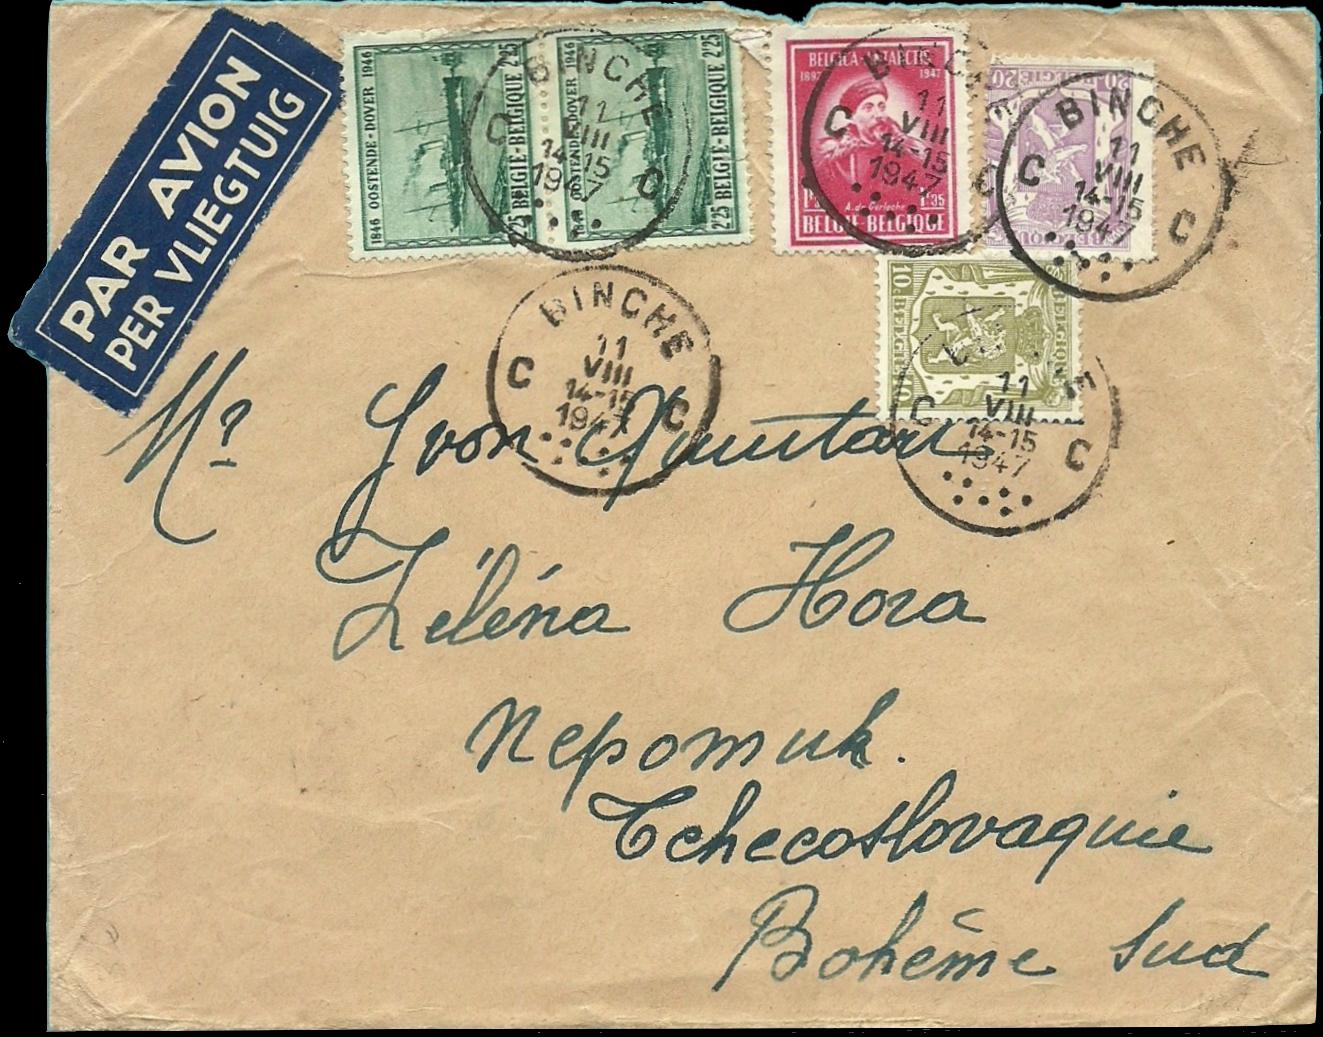 PAR AVION
PER VLIEGTUIG
1846 OOSTENDE-DOVER 1946
2'25 BELGIE-BELGIQUE 2'25
OOSTENDE-DOVER 1946
2'25 BELGIE-BELGIQUE 2'25
BELGICA ANTARCTIS
1897 1947
A. de Gerlache
1'35
BELGIE-BELGIQUE
20 BELGIË 20
10c BELGIE
BELGIQUE
BINCHE
C C
11
VIII
14-15
1947
BINCHE
C
11
VIII
14-15
1947
BINCHE
C C
11
VIII
14-15
1947
BINCHE
C C
11
VIII
14-15
1947
C C
11
VIII
14-15
1947
Mr Yvon
Zéléna Hora
Nepomuk.
Tchecoslovaquie
Bohême Sud